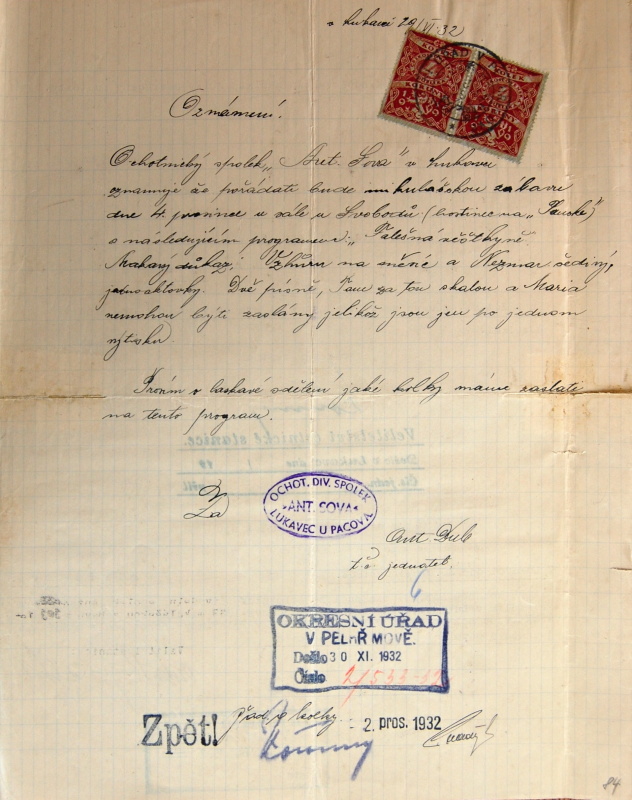 v Lukavci 29/XI. 32
Oznámení.
Ochotnický spolek „Ant. Sova" v Lukavci
oznamuje že pořádati bude mikulášskou zábavu
dne 4. prosince v sále u Svobodů (hostinec na „Panské")
s následujícím programem:
důkaz, Vzhůru na sněné a Nezmar šediny,
jednoaktovky. Dvě písně, Tam za tou skalou a Maria
nemohou býti zaslány jelikož jsou jen po jednom
výtisku.
Prosím o laskavé sdělení jaké kolky máme zaslati
na tento program.
Za
OCHOT. DIV. SPOLEK
"ANT. SOVA"
LUKAVEC U PACOVA
Ant. Dub
t. č. jednatel.
OKRESNÍ ÚŘAD
V PELHŘIMOVĚ.
Došlo 30 XI. 1932
Číslo
Zpět!
kolky
- 2. pros. 1932
84